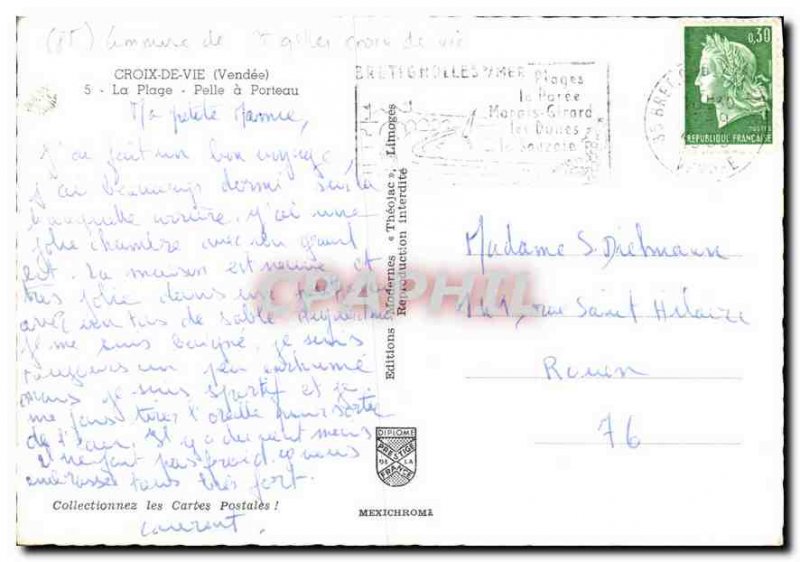 (85) commune de St gilles croix de vie
CROIX-DE-VIE (Vendée)
5 - La Plage - Pelle à Porteau
Ma petite Mamie,
J'ai fait un bon voyage,
j'ai beaucoup dormi sur la
banquette arrière. J'ai une
jolie chambre avec un grand
lit. La maison est neuve et
très jolie dans une
avec un tas de sable
je me suis baigné, je suis
toujours un peu enrhumé
mais je suis sportif et je
me fais tirer l'oreille pour sortir
de l'eau. Il y a du vent mais
il ne fait pas froid. Je vous
embrasse tous très fort.
Laurent.
Collectionnez les Cartes Postales !
Editions Modernes « Théojac », Limoges
Reproduction interdite
BRETIGNOLLES S/MER
Plages
la Parée
Marais-Girard
les Dunes
la Sauzaie
85 BRET
VENDEE
0,30
POSTES
REPUBLIQUE FRANÇAISE
Madame S. Dielmann
149, rue Saint Hilaire
Rouen
76
DIPLOME
PRESTIGE
DE LA
FRANCE
MEXICHROME
CPAPHIL